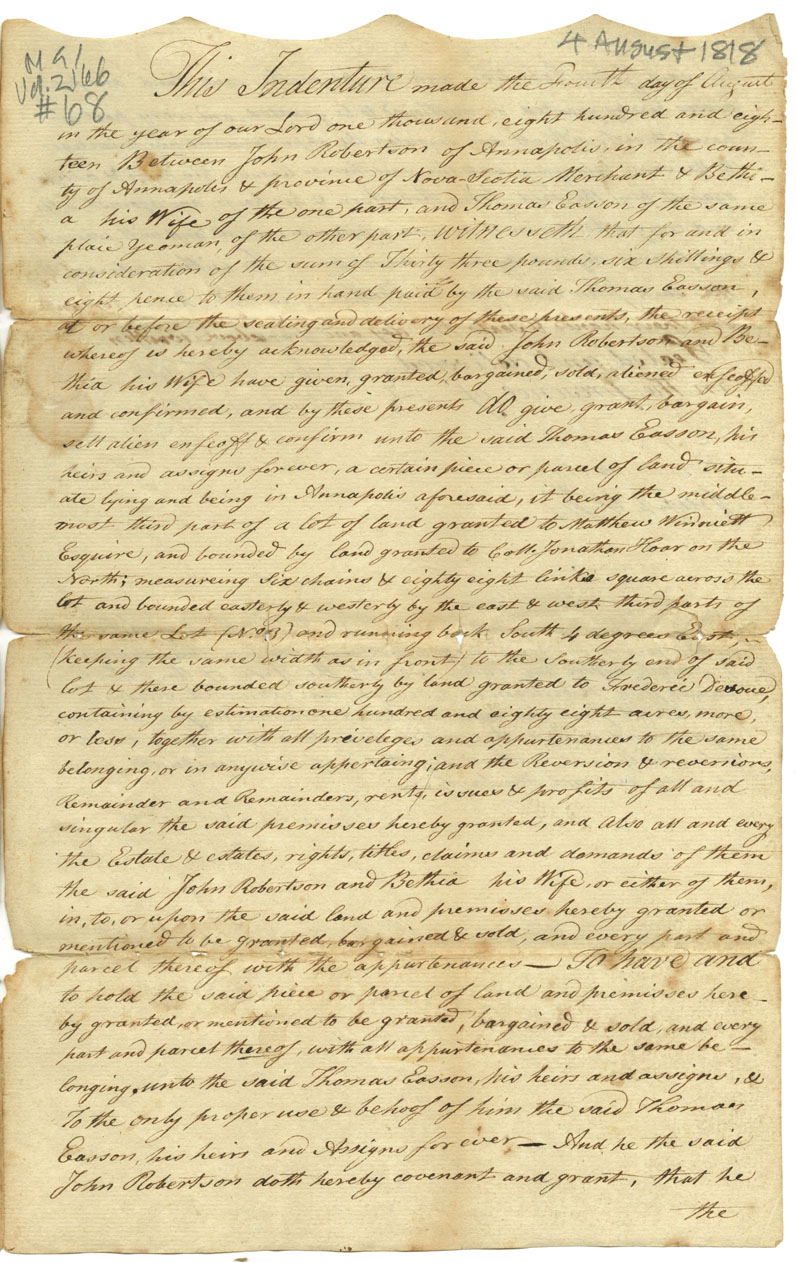 M G 1
Vol. 2166
#68
4 August 1818
This Indenture made the Fourth day of August
in the year of our Lord one thousand, eight hundred and eigh-
teen Between John Robertson of Annapolis, in the coun-
ty of Annapolis & province of Nova-Scotia Merchant & Bethi-
a his Wife of the one part, and Thomas Easson of the same
place Yeoman, of the other part, Witnesseth that for and in
consideration of the sum of Thirty three pounds, six shillings &
eight pence to them in hand paid by the said Thomas Easson,
at or before the sealing and delivery of these presents, the receipt
whereof is hereby acknowledged, the said John Robertson and Be-
thia his Wife have given, granted, bargained, sold, aliened enfeoffed
and confirmed, and by these presents do give, grant, bargain,
sell alien enfeoff & confirm unto the said Thomas Easson, his
heirs and assigns forever, a certain piece or parcel of land situ-
ate lying and being in Annapolis aforesaid, it being the middle-
most third part of a lot of land granted to Matthew Winniett
Esquire, and bounded by land granted to Coll. Jonathan Hoar on the
North; measureing six chains & eighty eight links square across the
lot and bounded easterly & westerly by the east & west third parts of
the same Lot (No. 3) and running back South 4 degrees East,
(keeping the same width as in front) to the Southerly end of said
lot & there bounded southerly by land granted to Frederic Devoue,
containing by estimation one hundred and eighty eight acres, more,
or less, together with all priveleges and appurtenances to the same
belonging, or in anywise appertaing; and the Reversion & reversions,
Remainder and Remainders, rents, issues & profits of all and
singular the said premisses hereby granted, and Also all and every
the Estate & estates, rights, titles, claims and demands of them
the said John Robertson and Bethia his Wife, or either of them,
in, to, or upon the said land and premisses hereby granted or
mentioned to be granted, bargained & sold, and every part and
parcel thereof with the appurtenances — To have and
to hold the said piece or parcel of land and premisses here-
by granted, or mentioned to be granted, bargained & sold, and every
part and parcel thereof, with all appurtenances to the same be-
longing, unto the said Thomas Easson, his heirs and assigns, &
To the only proper use & behoof of him the said Thomas
Easson, his heirs and Assigns for ever — And he the said
John Robertson doth hereby covenant and grant, that he
the